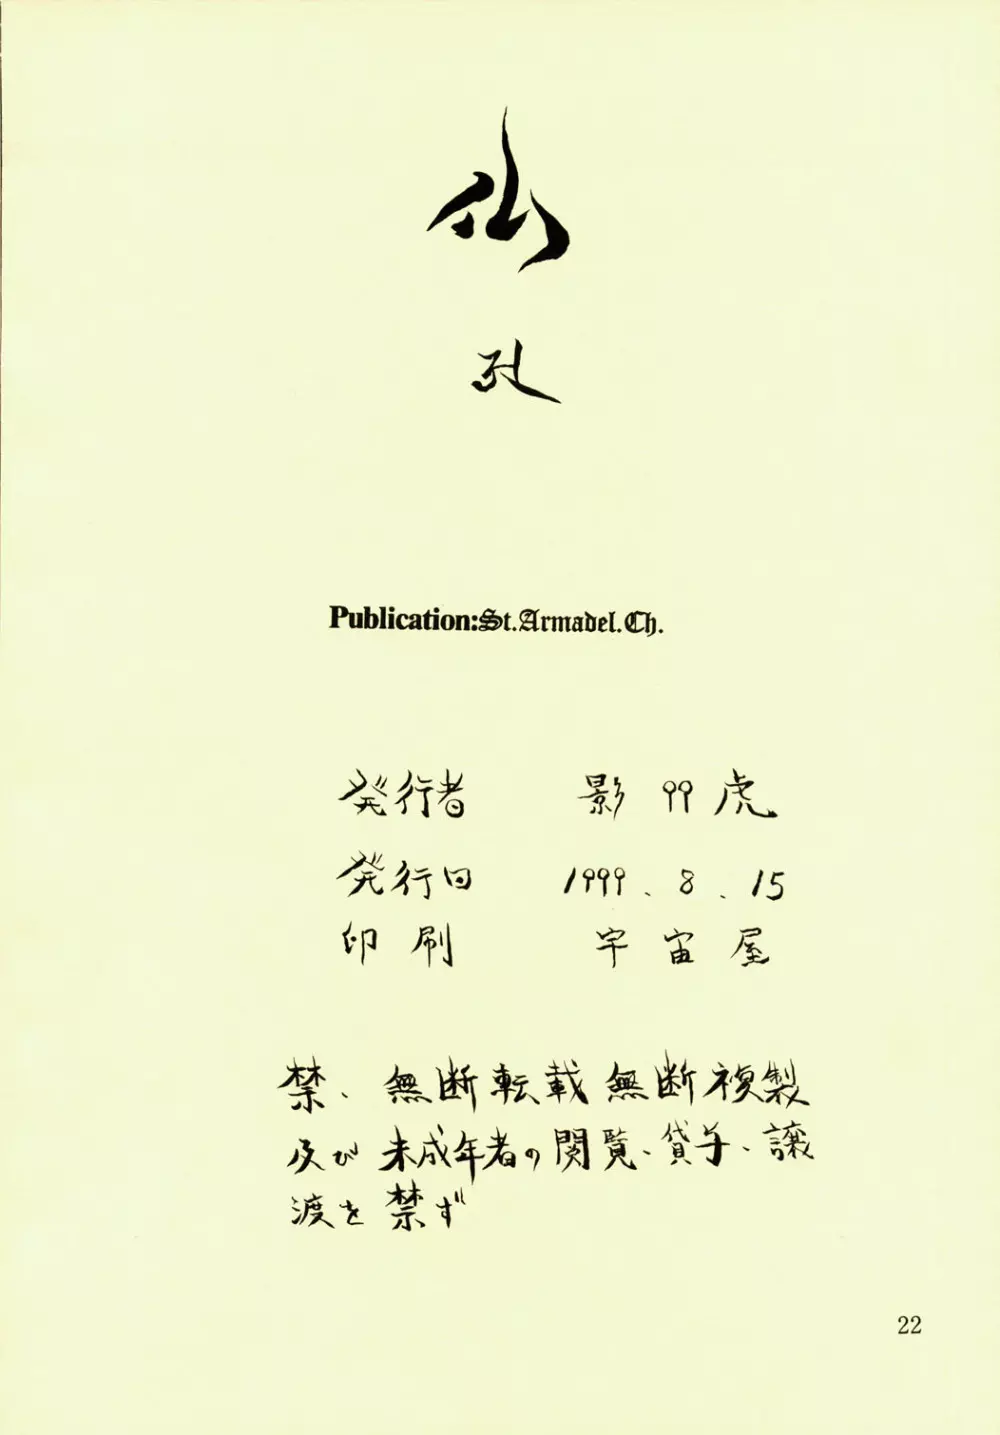 仙
孔
Publication:St.Armadel.Ch.
発行者 影99虎
発行日 1999.8.15
印刷 宇宙屋
禁、無断転載無断複製
及び未成年者の閲覧、貸与、譲
渡を禁ず
22